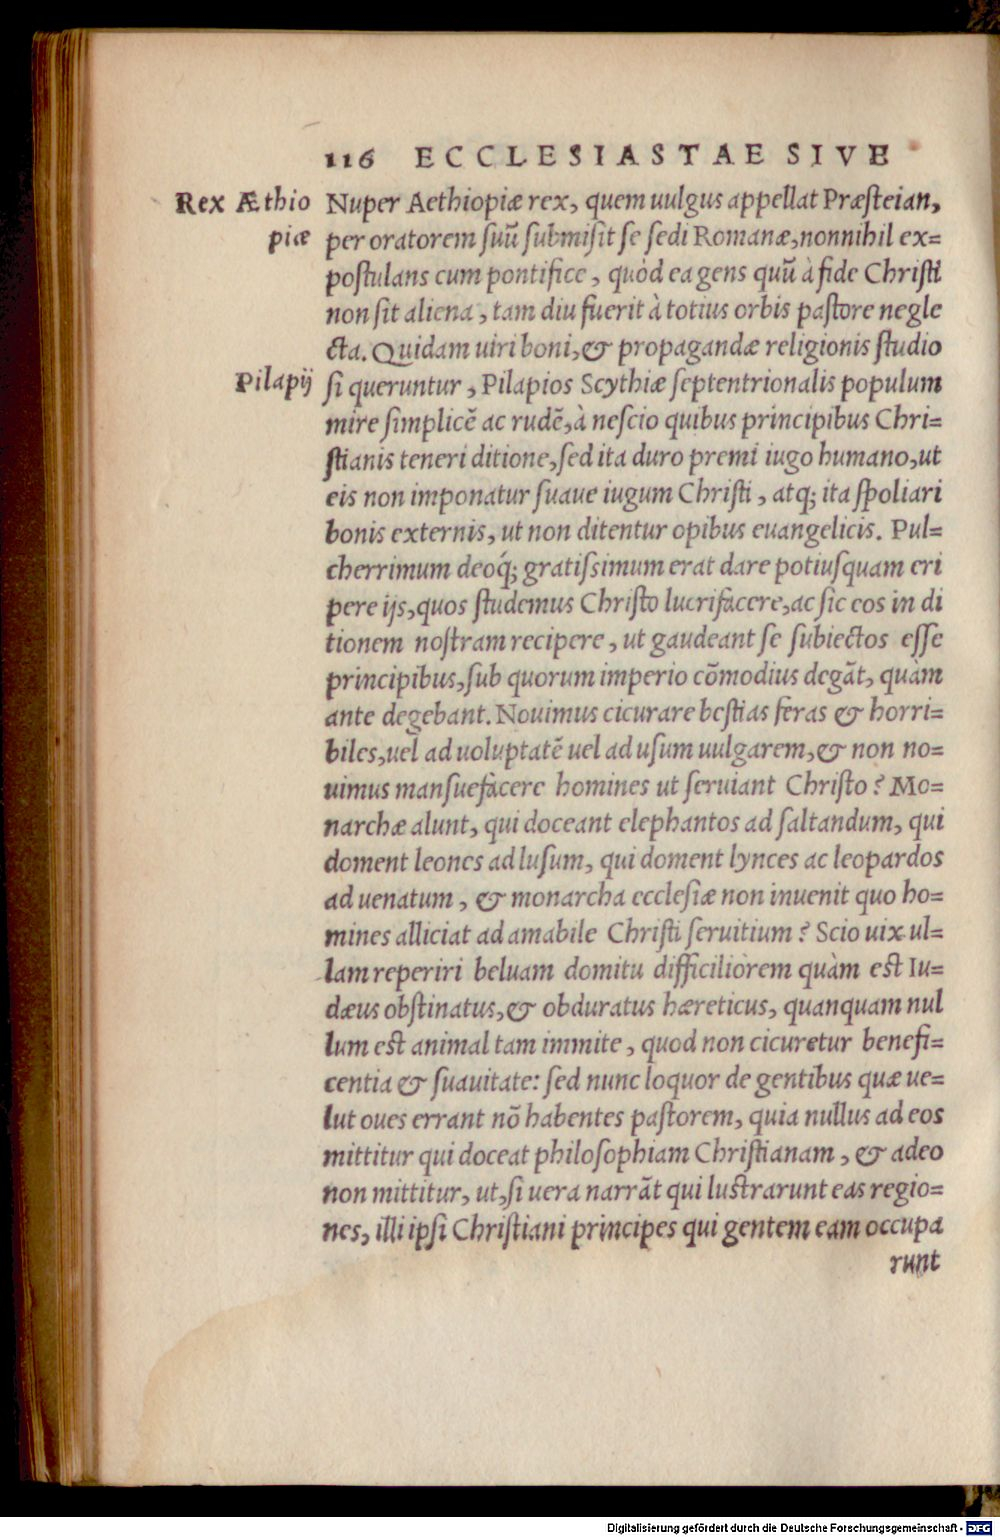 116 ECCLESIASTAE SIVE
Rex Æthio
piæ
Nuper Aethiopiæ rex, quem uulgus appellat Præsteian,
per oratorem suũ submisit se sedi Romanæ, nonnihil ex=
postulans cum pontifice, quòd ea gens quũ à fide Christi
non sit aliena, tam diu fuerit à totius orbis pastore negle
cta. Quidam uiri boni, & propagandæ religionis studio
Pilapij
si queruntur, Pilapios Scythiæ septentrionalis populum
mire simplicẽ ac rudẽ, à nescio quibus principibus Chri=
stianis teneri ditione, sed ita duro premi iugo humano, ut
eis non imponatur suaue iugum Christi, atq; ita spoliari
bonis externis, ut non ditentur opibus euangelicis. Pul=
cherrimum deoq́; gratissimum erat dare potiusquam eri
pere ijs, quos studemus Christo lucrifacere, ac sic eos in di
tionem nostram recipere, ut gaudeant se subiectos esse
principibus, sub quorum imperio cõmodius degãt, quàm
ante degebant. Nouimus cicurare bestias feras & horri=
biles, uel ad uoluptatẽ uel ad usum uulgarem, & non no=
uimus mansuefacere homines ut seruiant Christo? Mo=
narchæ alunt, qui doceant elephantos ad saltandum, qui
doment leones ad lusum, qui doment lynces ac leopardos
ad uenatum, & monarcha ecclesiæ non inuenit quo ho=
mines alliciat ad amabile Christi seruitium? Scio uix ul=
lam reperiri beluam domitu difficiliorem quàm est Iu=
dæus obstinatus, & obduratus hæreticus, quanquam nul
lum est animal tam immite, quod non cicuretur benefi=
centia & suauitate: sed nunc loquor de gentibus quæ ue=
lut oues errant nõ habentes pastorem, quia nullus ad eos
mittitur qui doceat philosophiam Christianam, & adeo
non mittitur, ut, si uera narrãt qui lustrarunt eas regio=
nes, illi ipsi Christiani principes qui gentem eam occupa
runt
Digitalisierung gefördert durch die Deutsche Forschungsgemeinschaft - DFG